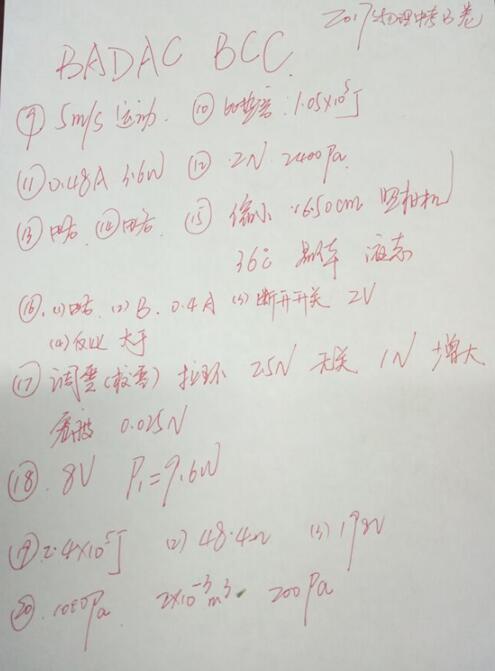 2017物理中考B卷
BADAC BCC
⑨ 5m/s 运动 ⑩ 1.05×10⁵J
⑪ 0.48A 3.6W ⑫ 2N 2400Pa
⑬ 略 ⑭ 略 ⑮ 缩小 16.50cm 照相机
36℃ 晶体 液态
⑯ (1)略 (2) B 0.4A (3) 断开开关 2V
(4) 大于
⑰ 调零(校零) 拉环 2.5N 无关 1N 增大
0.025N
⑱ 8V P₁=9.6W
⑲ 2.4×10⁵J (2) 48.4Ω (3)
⑳ 1000Pa 2×10⁻³m³ 200Pa